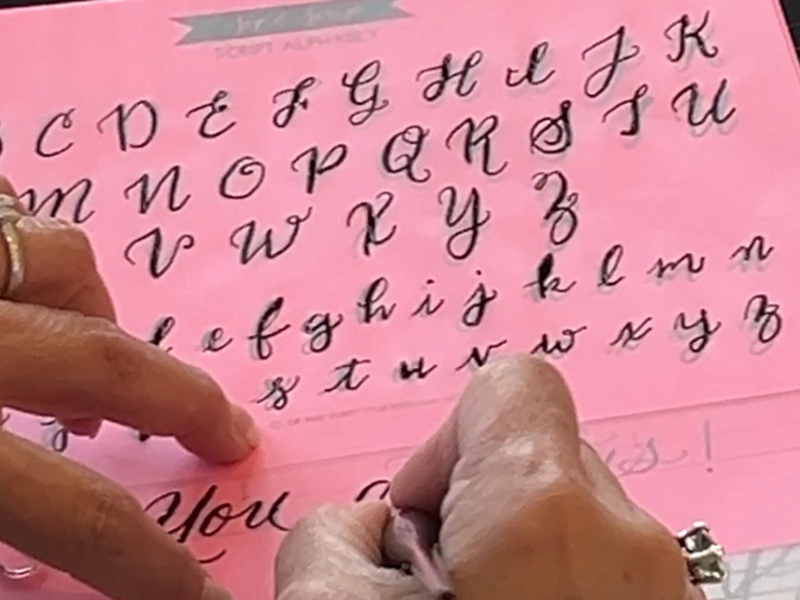 SCRIPT ALPHABET
C D E F G H I J K
M N O P Q R S T U
V W X Y Z
e f g h i j k l m n
s t u v w x y z
You